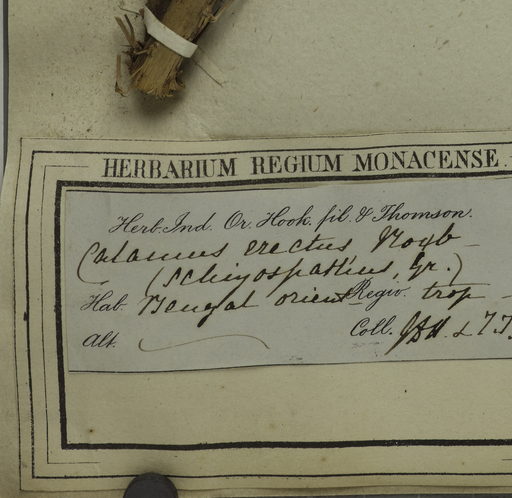 HERBARIUM REGIUM MONACENSE.
Herb. Ind. Or. Hook. fil. & Thomson.
Calamus erectus Roxb
(schizospathus, Gr.)
Hab. Bengal orient Regio. trop
Alt. Coll. JDH. & T.T.